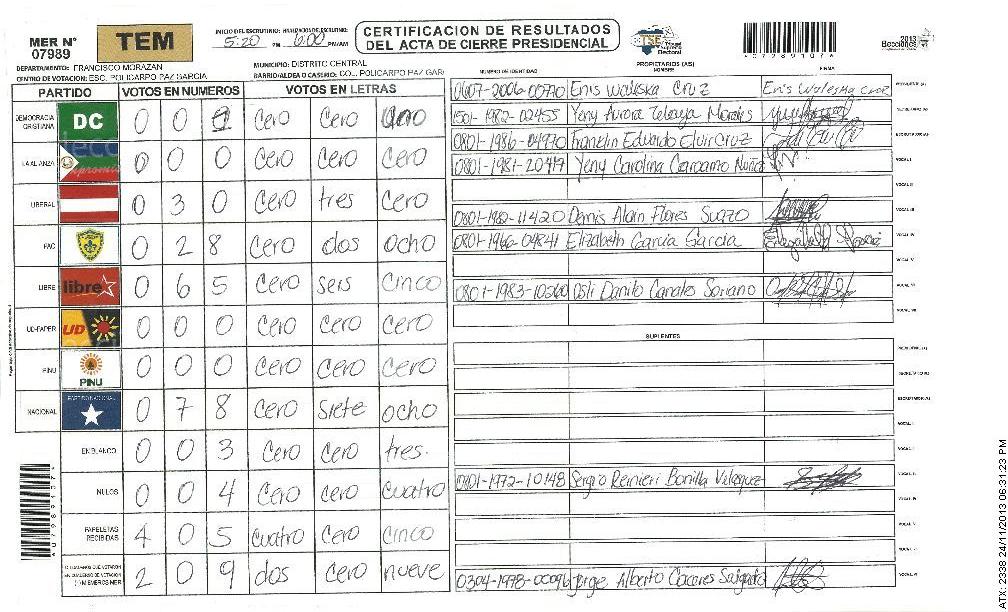 MER N° 07989
TEM
INICIO DEL ESCRUTINIO: 5:20 PM
FINALIZACION DE ESCRUTINIO: 6:00 PM/AM
CERTIFICACION DE RESULTADOS
DEL ACTA DE CIERRE PRESIDENCIAL
TSE
2013
Elecciones
DEPARTAMENTO: FRANCISCO MORAZAN
MUNICIPIO: DISTRITO CENTRAL
CENTRO DE VOTACION: ESC. POLICARPO PAZ GARCIA
BARRIO/ALDEA O CASERIO: COL. POLICARPO PAZ GAR
PARTIDO VOTOS EN NUMEROS VOTOS EN LETRAS
DEMOCRACIA CRISTIANA DC 0 0 Cero Cero
LA ALIANZA 0 0 0 Cero Cero Cero
LIBERAL 0 3 0 Cero tres Cero
PAC 0 2 8 Cero dos ocho
LIBRE libre 0 6 5 Cero seis cinco
UD-FAPER UD 0 0 0 Cero Cero Cero
PINU PINU 0 0 0 Cero Cero Cero
NACIONAL PARTIDO NACIONAL 0 7 8 Cero siete ocho
EN BLANCO 0 0 3 Cero cero tres.
NULOS 0 0 4 Cero cero cuatro
PAPELETAS RECIBIDAS 4 0 5 cuatro cero cinco
CIUDADANOS QUE VOTARON EN CUADERNO DE VOTACION (+) MIEMBROS MER 2 0 9 dos cero nueve
PROPIETARIOS (AS)
NUMERO DE IDENTIDAD NOMBRE FIRMA
0607-2006-00770 Enis Waleska Cruz Enis Waleska Cruz PRESIDENTE (A)
1501-1982-02455 Yeny Aurora Zelaya Morales SECRETARIO (A)
0801-1986-04970 Franklin Eduardo Elvir Cruz ESCRUTADOR (A)
0801-1981-20419 Yeny Carolina Carcamo Nuñez VOCAL I
VOCAL II
0801-1982-11420 Denis Alain Flores Suazo VOCAL III
0801-1966-04841 Elizabeth Garcia Garcia VOCAL IV
VOCAL V
0801-1983-10560 Osli Danilo Canales Soriano VOCAL VI
VOCAL VII
SUPLENTES
PRESIDENTE (A)
SECRETARIO (A)
ESCRUTADOR (A)
VOCAL I
0801-1972-10148 Sergio Reinieri Bonilla Velasquez
VOCAL V
0304-1978-00096 Jorge Alberto Caceres Salgado
ATX: 2338 24/11/2013 06:31:23 PM